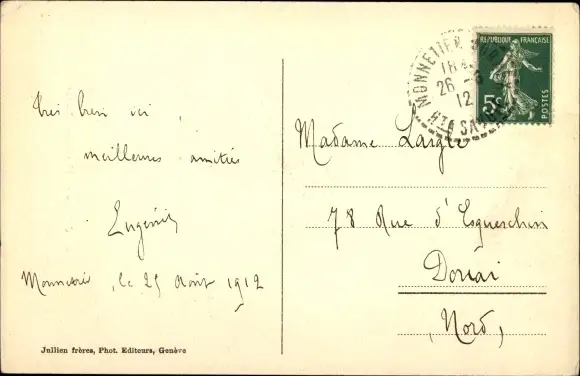 Très bien ici,
meilleures amitiés
Eugénie
le 25 Août 1912
Jullien frères, Phot. Editeurs, Genève
MONNETIER
18
26 -8
12
HTE SAVOIE
REPUBLIQUE FRANÇAISE
5c
POSTES
Madame Laigle
78 Rue d'Esquerchin
Douai
(Nord)